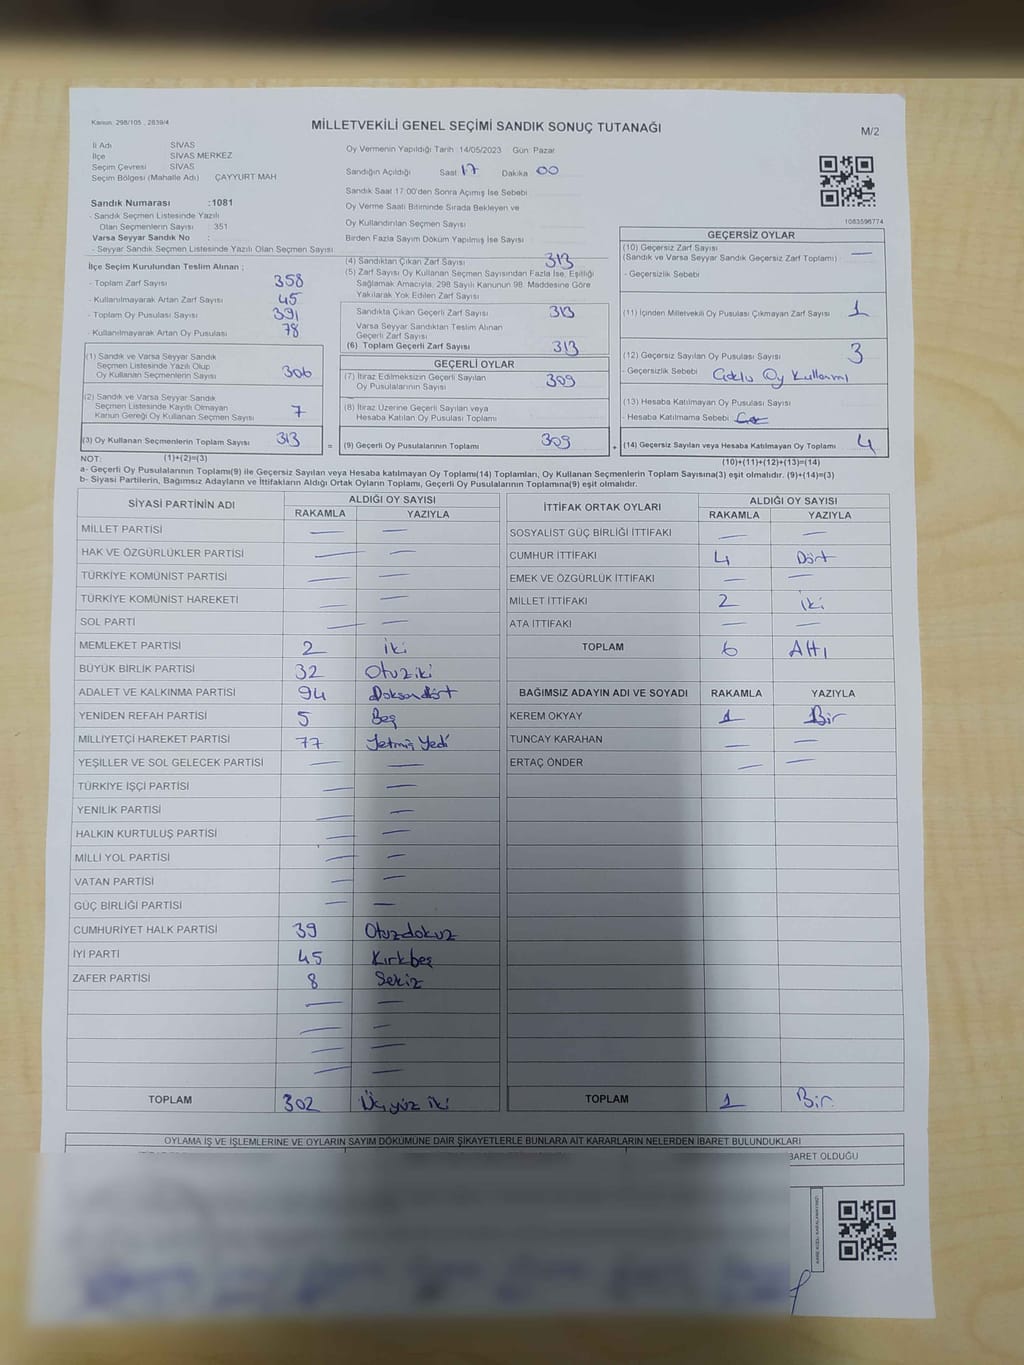 Kanun: 298/105 , 2839/4
MİLLETVEKİLİ GENEL SEÇİMİ SANDIK SONUÇ TUTANAĞI
M/2
İl Adı SİVAS
İlçe SİVAS MERKEZ
Seçim Çevresi SİVAS
Seçim Bölgesi (Mahalle Adı) ÇAYYURT MAH
Sandık Numarası :1081
- Sandık Seçmen Listesinde Yazılı
Olan Seçmenlerin Sayısı : 351
Varsa Seyyar Sandık No :
- Seyyar Sandık Seçmen Listesinde Yazılı Olan Seçmen Sayısı
Oy Vermenin Yapıldığı Tarih :14/05/2023 Gün: Pazar
Sandığın Açıldığı Saat 17 Dakika 00
Sandık Saat 17:00'den Sonra Açımış İse Sebebi
Oy Verme Saati Bitiminde Sırada Bekleyen ve
Oy Kullandırılan Seçmen Sayısı
Birden Fazla Sayım Döküm Yapılmış İse Sayısı
1083596774
İlçe Seçim Kurulundan Teslim Alınan ;
- Toplam Zarf Sayısı 358
- Kullanılmayarak Artan Zarf Sayısı 45
- Toplam Oy Pusulası Sayısı 391
- Kullanılmayarak Artan Oy Pusulası 78
(1) Sandık ve Varsa Seyyar Sandık
Seçmen Listesinde Yazılı Olup
Oy Kullanan Seçmenlerin Sayısı 306
(2) Sandık ve Varsa Seyyar Sandık
Seçmen Listesinde Kayıtlı Olmayan
Kanun Gereği Oy Kullanan Seçmen Sayısı 7
(3) Oy Kullanan Seçmenlerin Toplam Sayısı 313
(4) Sandıktan Çıkan Zarf Sayısı 313
(5) Zarf Sayısı Oy Kullanan Seçmen Sayısından Fazla İse, Eşitliği
Sağlamak Amacıyla, 298 Sayılı Kanunun 98. Maddesine Göre
Yakılarak Yok Edilen Zarf Sayısı
Sandıkta Çıkan Geçerli Zarf Sayısı 313
Varsa Seyyar Sandıktan Teslim Alınan
Geçerli Zarf Sayısı
(6) Toplam Geçerli Zarf Sayısı 313
GEÇERLİ OYLAR
(7) İtiraz Edilmeksizin Geçerli Sayılan
Oy Pusulalarının Sayısı 309
(8) İtiraz Üzerine Geçerli Sayılan veya
Hesaba Katılan Oy Pusulası Toplamı
= (9) Geçerli Oy Pusulalarının Toplamı 309
GEÇERSİZ OYLAR
(10) Geçersiz Zarf Sayısı —
(Sandık ve Varsa Seyyar Sandık Geçersiz Zarf Toplamı)
- Geçersizlik Sebebi
(11) İçinden Milletvekili Oy Pusulası Çıkmayan Zarf Sayısı 1
(12) Geçersiz Sayılan Oy Pusulası Sayısı 3
- Geçersizlik Sebebi Çoklu Oy Kullanımı
(13) Hesaba Katılmayan Oy Pusulası Sayısı
- Hesaba Katılmama Sebebi
+ (14) Geçersiz Sayılan veya Hesaba Katılmayan Oy Toplamı 4
NOT: (1)+(2)=(3)
(10)+(11)+(12)+(13)=(14)
a- Geçerli Oy Pusulalarının Toplamı(9) ile Geçersiz Sayılan veya Hesaba katılmayan Oy Toplamı(14) Toplamları, Oy Kullanan Seçmenlerin Toplam Sayısına(3) eşit olmalıdır. (9)+(14)=(3)
b- Siyasi Partilerin, Bağımsız Adayların ve İttifakların Aldığı Ortak Oyların Toplamı, Geçerli Oy Pusulalarının Toplamına(9) eşit olmalıdır.
SİYASİ PARTİNİN ADI ALDIĞI OY SAYISI
RAKAMLA YAZIYLA
MİLLET PARTİSİ — —
HAK VE ÖZGÜRLÜKLER PARTİSİ — —
TÜRKİYE KOMÜNİST PARTİSİ — —
TÜRKİYE KOMÜNİST HAREKETİ — —
SOL PARTİ — —
MEMLEKET PARTİSİ 2 İki
BÜYÜK BİRLİK PARTİSİ 32 Otuziki
ADALET VE KALKINMA PARTİSİ 94 Doksandört
YENİDEN REFAH PARTİSİ 5 Beş
MİLLİYETÇİ HAREKET PARTİSİ 77 Yetmiş Yedi
YEŞİLLER VE SOL GELECEK PARTİSİ — —
TÜRKİYE İŞÇİ PARTİSİ — —
YENİLİK PARTİSİ — —
HALKIN KURTULUŞ PARTİSİ — —
MİLLİ YOL PARTİSİ — —
VATAN PARTİSİ — —
GÜÇ BİRLİĞİ PARTİSİ — —
CUMHURİYET HALK PARTİSİ 39 Otuzdokuz
İYİ PARTİ 45 Kırkbeş
ZAFER PARTİSİ 8 Sekiz
— —
— —
— —
— —
TOPLAM 302 Üçyüz iki
İTTİFAK ORTAK OYLARI ALDIĞI OY SAYISI
RAKAMLA YAZIYLA
SOSYALİST GÜÇ BİRLİĞİ İTTİFAKI — —
CUMHUR İTTİFAKI 4 Dört
EMEK VE ÖZGÜRLÜK İTTİFAKI — —
MİLLET İTTİFAKI 2 İki
ATA İTTİFAKI — —
TOPLAM 6 Altı
BAĞIMSIZ ADAYIN ADI VE SOYADI RAKAMLA YAZIYLA
KEREM OKYAY 1 Bir
TUNCAY KARAHAN — —
ERTAÇ ÖNDER — —
TOPLAM 1 Bir
OYLAMA İŞ VE İŞLEMLERİNE VE OYLARIN SAYIM DÖKÜMÜNE DAİR ŞİKAYETLERLE BUNLARA AİT KARARLARIN NELERDEN İBARET BULUNDUKLARI
BARET OLDUĞU
KARE KODU KARALAMAYINIZ!